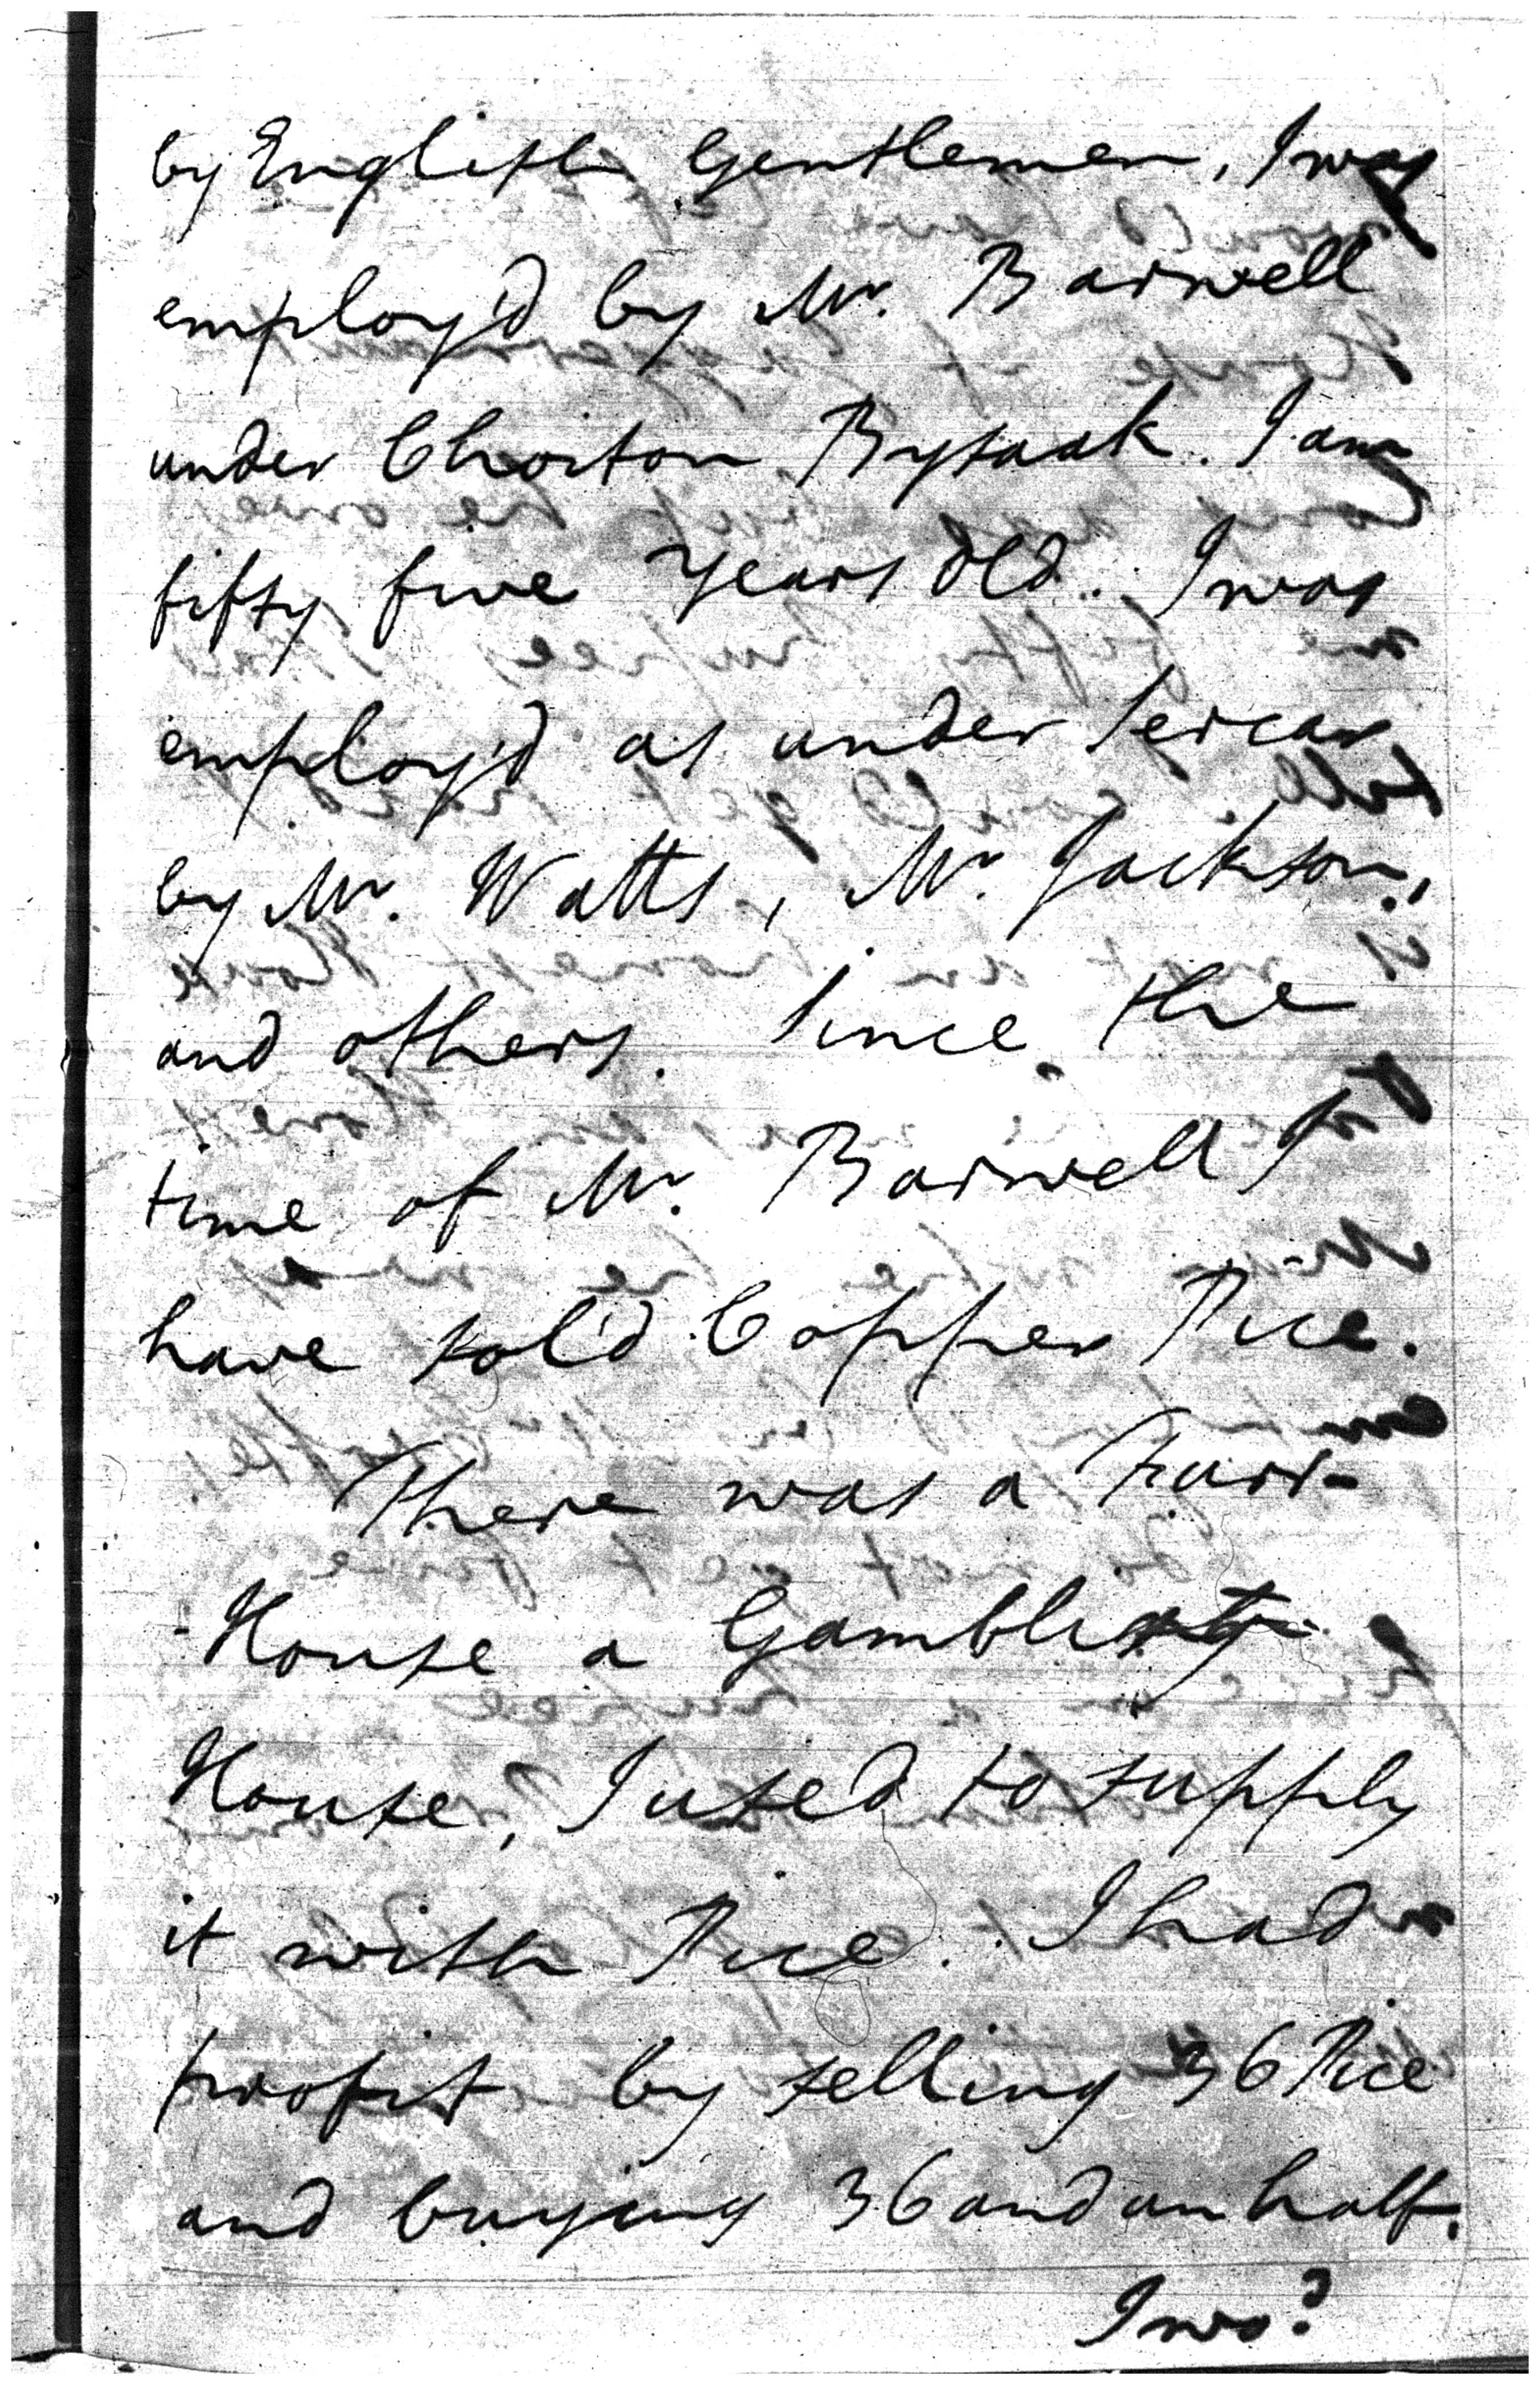 by English Gentlemen, I was
employ'd by Mr. Barwell
under Choiton Bysaak. I am
fifty five Years old. I was
employ'd as under Sercar
by Mr. Watts, Mr. Jackson,
and others. Since the
time of Mr. Barwell I
have sold Copper Pice.
There was a
-House a Gambling
House, I used to supply
it with Pice. I had
profit by selling 36 Pice
and buying 36 and an half.
I wo?